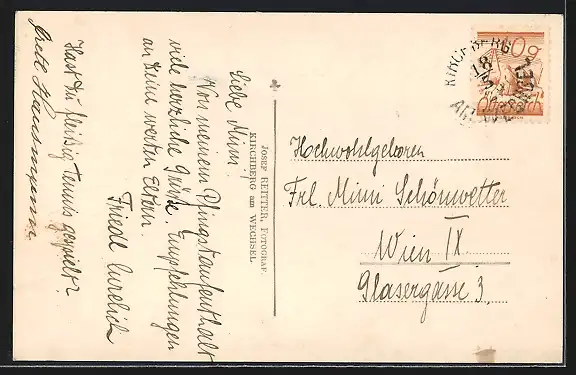 Liebe Mimi!
Von meinem Pfingstaufenthalt
viele herzliche Grüße. Empfehlungen
an Deine werten Eltern.
Friedl
Hast du fleißig Tennis gespielt?
Gretl
Josef REITTER, Fotograf.
KIRCHBERG am WECHSEL.
KIRCHBERG
AM WECHSEL
18
10g
Österreich
Hochwohlgeboren
Frl. Mimi Schönwetter
Wien IX.
Glasergasse 3.